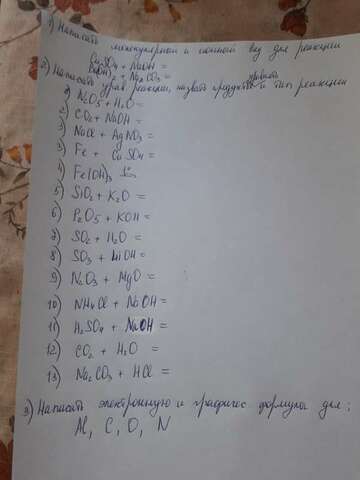 1) Написать молекулярный и ионный вид для реакции
CuSO4 + NaOH =
Ba(OH)2 + Na2CO3 =
2) Написать уравн. реакции, назвать продукты и тип реакции
уравнять
1) N2O5 + H2O =
2) CO2 + NaOH =
3) NaCl + AgNO3 =
3) Fe + CuSO4 =
4) Fe(OH)3 t° =
5) SiO2 + K2O =
6) P2O5 + KOH =
7) SO2 + H2O =
8) SO3 + LiOH =
9) N2O3 + MgO =
10) NH4Cl + NaOH =
11) H2SO4 + NaOH =
12) CO2 + H2O =
13) Na2CO3 + HCl =
3) Написать электронную и графичес формулы для:
Al, C, O, N